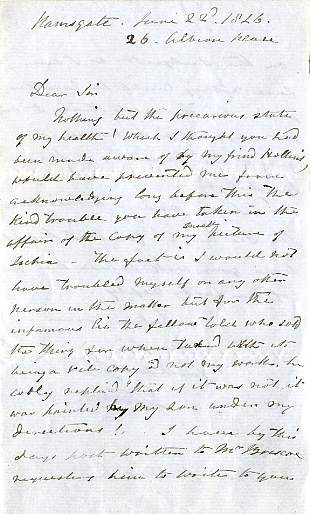 Ramsgate. June 22d. 1846.
26. Albion Place
Dear Sir
Nothing but the precarious state
of my health! which I thought you had
been made aware of by my friend Hollins,
would have prevented me from
acknowledging long before this the
kind trouble you have taken in the
affair of the copy of my small picture of
Ischia - The fact is I would not
have troubled myself or any other
person in the matter but for the
infamous lie the fellow told who sold
the thing for when taxed with its
being a vile copy & not my work, he
cooly replied "that if it was not, it
was painted by my son under my
directions"! I have by this
days post written to Mr Roscoe
requesting him to write to you